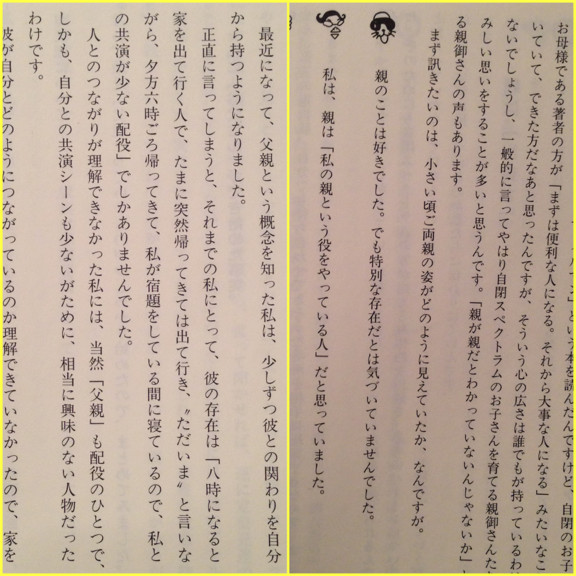 という本を読んだんですけど、自閉のお子
お母様である著者の方が「まずは便利な人になる。それから大事な人になる」みたいなこ
いていて、できた方だなあと思ったんですが、そういう心の広さは誰でもが持っているわ
ないでしょうし、一般的に言ってやはり自閉スペクトラムのお子さんを育てる親御さんた
みしい思いをすることが多いと思うんです。「親が親だとわかっていないんじゃないか」
る親御さんの声もあります。
まず訊きたいのは、小さい頃ご両親の姿がどのように見えていたか、なんですが。
親のことは好きでした。でも特別な存在だとは気づいていませんでした。
私は、親は「私の親という役をやっている人」だと思っていました。
最近になって、父親という概念を知った私は、少しずつ彼との関わりを自分
から持つようになりました。
正直に言ってしまうと、それまでの私にとって、彼の存在は「八時になると
家を出て行く人で、たまに突然帰ってきては出て行き、〝ただいま〟と言いな
がら、夕方六時ごろ帰ってきて、私が宿題をしている間に寝ているので、私と
の共演が少ない配役」でしかありませんでした。
人とのつながりが理解できなかった私には、当然「父親」も配役のひとつで、
しかも、自分との共演シーンも少ないがために、相当に興味のない人物だった
わけです。
彼が自分とどのようにつながっているのか理解できていなかったので、家を